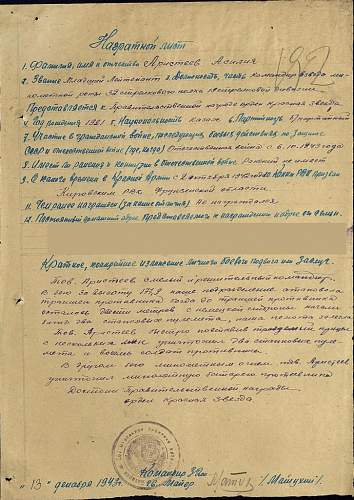 Наградной лист
192
1. Фамилия, имя и отчество Аристеев Асилия
2. Звание Младший лейтенант 3. Должность, часть командир взвода мино-
метной роты стрелкового полка стрелковой дивизии
Представляется к Правительственной награде орден Красная Звезда
4. Год рождения 1921 5. Национальность казах 6. Партийность б/партийный
7. Участие в гражданской войне, последующих боевых действиях по защите
СССР и отечественной войне (где, когда) Отечественная война с 6.10.1943 года
8. Имеет ли ранения и контузии в отечественной войне Ранений не имеет
9. С какого времени в Красной Армии с октября 1942 10. Каким РВК призван
Кировским РВК Фрунзенской области
11. Чем ранее награжден (за какие отличия) Не награждался
12. Постоянный домашний адрес представляемого к награждению и адрес его семьи
Краткое, конкретное изложение личного боевого подвига или заслуг.
Тов. Аристеев смелый и решительный командир.
В бою за высоту 179,9 наше подразделение атаковало
траншеи противника когда до траншеи противника
осталось метров с нашей стороны начали
бить два станковых пулемета, наша пехота залегла
Тов. Аристеев быстро поставив
с нескольких мин уничтожил два станковые пуле-
мета и восемь солдат противника.
В другом бою минометным огнем тов. Аристеев
уничтожил минометную батарею противника
Достоин Правительственной награды
орден Красная Звезда
Командир
гв. Майор / Матицкий /
"13" декабря 1943 г.